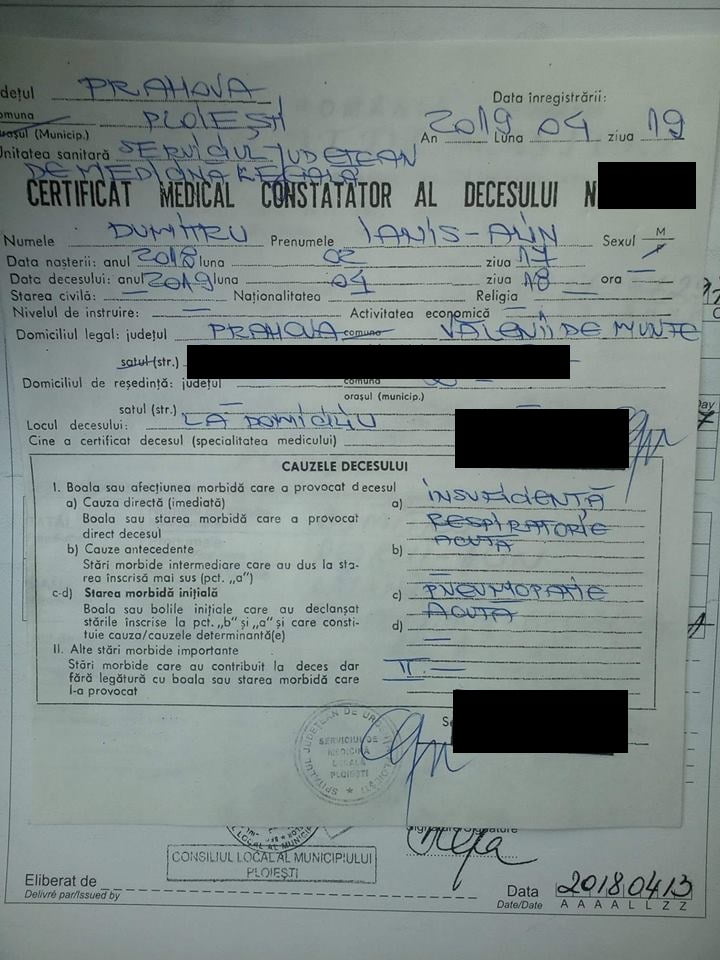 dețul PRAHOVA
Data înregistrării:
omuna PLOIEȘTI
orașul (Municip.)
An 2019 Luna 04 ziua 19
Unitatea sanitară SERVICIUL JUDEȚEAN
DE MEDICINA LEGALA
CERTIFICAT MEDICAL CONSTATATOR AL DECESULUI N
Numele DUMITRU Prenumele IANIS-ALIN Sexul M F
Data nașterii: anul 2018 luna 02 ziua 17
Data decesului: anul 2019 luna 04 ziua 18 ora —
Starea civilă: — Naționalitatea Religia —
Nivelul de instruire: — Activitatea economică —
Domiciliul legal: județul PRAHOVA comuna VĂLENII DE MUNTE
satul (str.)
Domiciliul de reședință: județul comuna
orașul (municip.)
satul (str.) —
Locul decesului: LA DOMICILIU
Cine a certificat decesul (specialitatea medicului)
CAUZELE DECESULUI
I. Boala sau afecțiunea morbidă care a provocat decesul
a) Cauza directă (imediată) a) INSUFICIENȚĂ
Boala sau starea morbidă care a provocat RESPIRATORIE
direct decesul ACUTĂ
b) Cauze antecedente b)
Stări morbide intermediare care au dus la sta- —
rea înscrisă mai sus (pct. „a")
c-d) Starea morbidă inițială c) PNEUMOPATIE
Boala sau bolile inițiale care au declanșat ACUTĂ
stările înscrise la pct. „b" și „a" și care consti- d)
tuie cauza/cauzele determinantă(e) —
II. Alte stări morbide importante
Stări morbide care au contribuit la deces dar II —
fără legătură cu boala sau starea morbidă care
l-a provocat
SPITALUL JUDEȚEAN DE URGENȚĂ PLOIEȘTI
SERVICIUL DE
MEDICINĂ
LEGALĂ
PLOIEȘTI
Signature
CONSILIUL LOCAL AL MUNICIPIULUI
PLOIEȘTI
Eliberat de
Délivré par/Issued by
Data 20180413
Date/Date A A A A L L Z Z